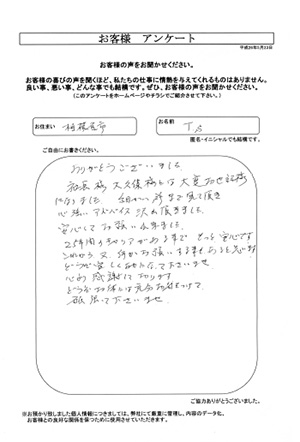 お客様 アンケート
平成26年3月23日
お客様の声をお聞かせください。
お客様の喜びの声を聞くほど、私たちの仕事に情熱を与えてくれるものはありません。
良い事、悪い事、どんな事でも結構です。ぜひ、お客様の声をお聞かせください。
(このアンケートをホームページやチラシでご紹介させて下さい。)
お住まい
相模原市
お名前
T.
匿名・イニシャルでも結構です。
ご自由にお書きください。
ありがとうございました
大久保様 大変お世話様
になりました 細かい所まで見て頂き
心強いアドバイス 沢山頂きました
安心してお願い出来ました
これから又、何かお願いする事もあると思います
どうか宜しくおねがいして下さいませ
心から感謝して おります
どうぞお体には充分お気をつけて
頑張って下さいませ
ご協力ありがとうございました。
※お預かり致しました個人情報につきましては、弊社にて厳重に管理し、内容のデータ化、
お客様との良好な関係を保つために使用させていただきます。